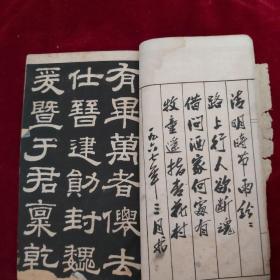 清明时节雨纷々
路上行人欲断魂
借问酒家何處有
牧童遥指杏花村
一九六七年 三月抄
有畢萬者僊去
仕晉建勛封魏
爰暨于君稟乾